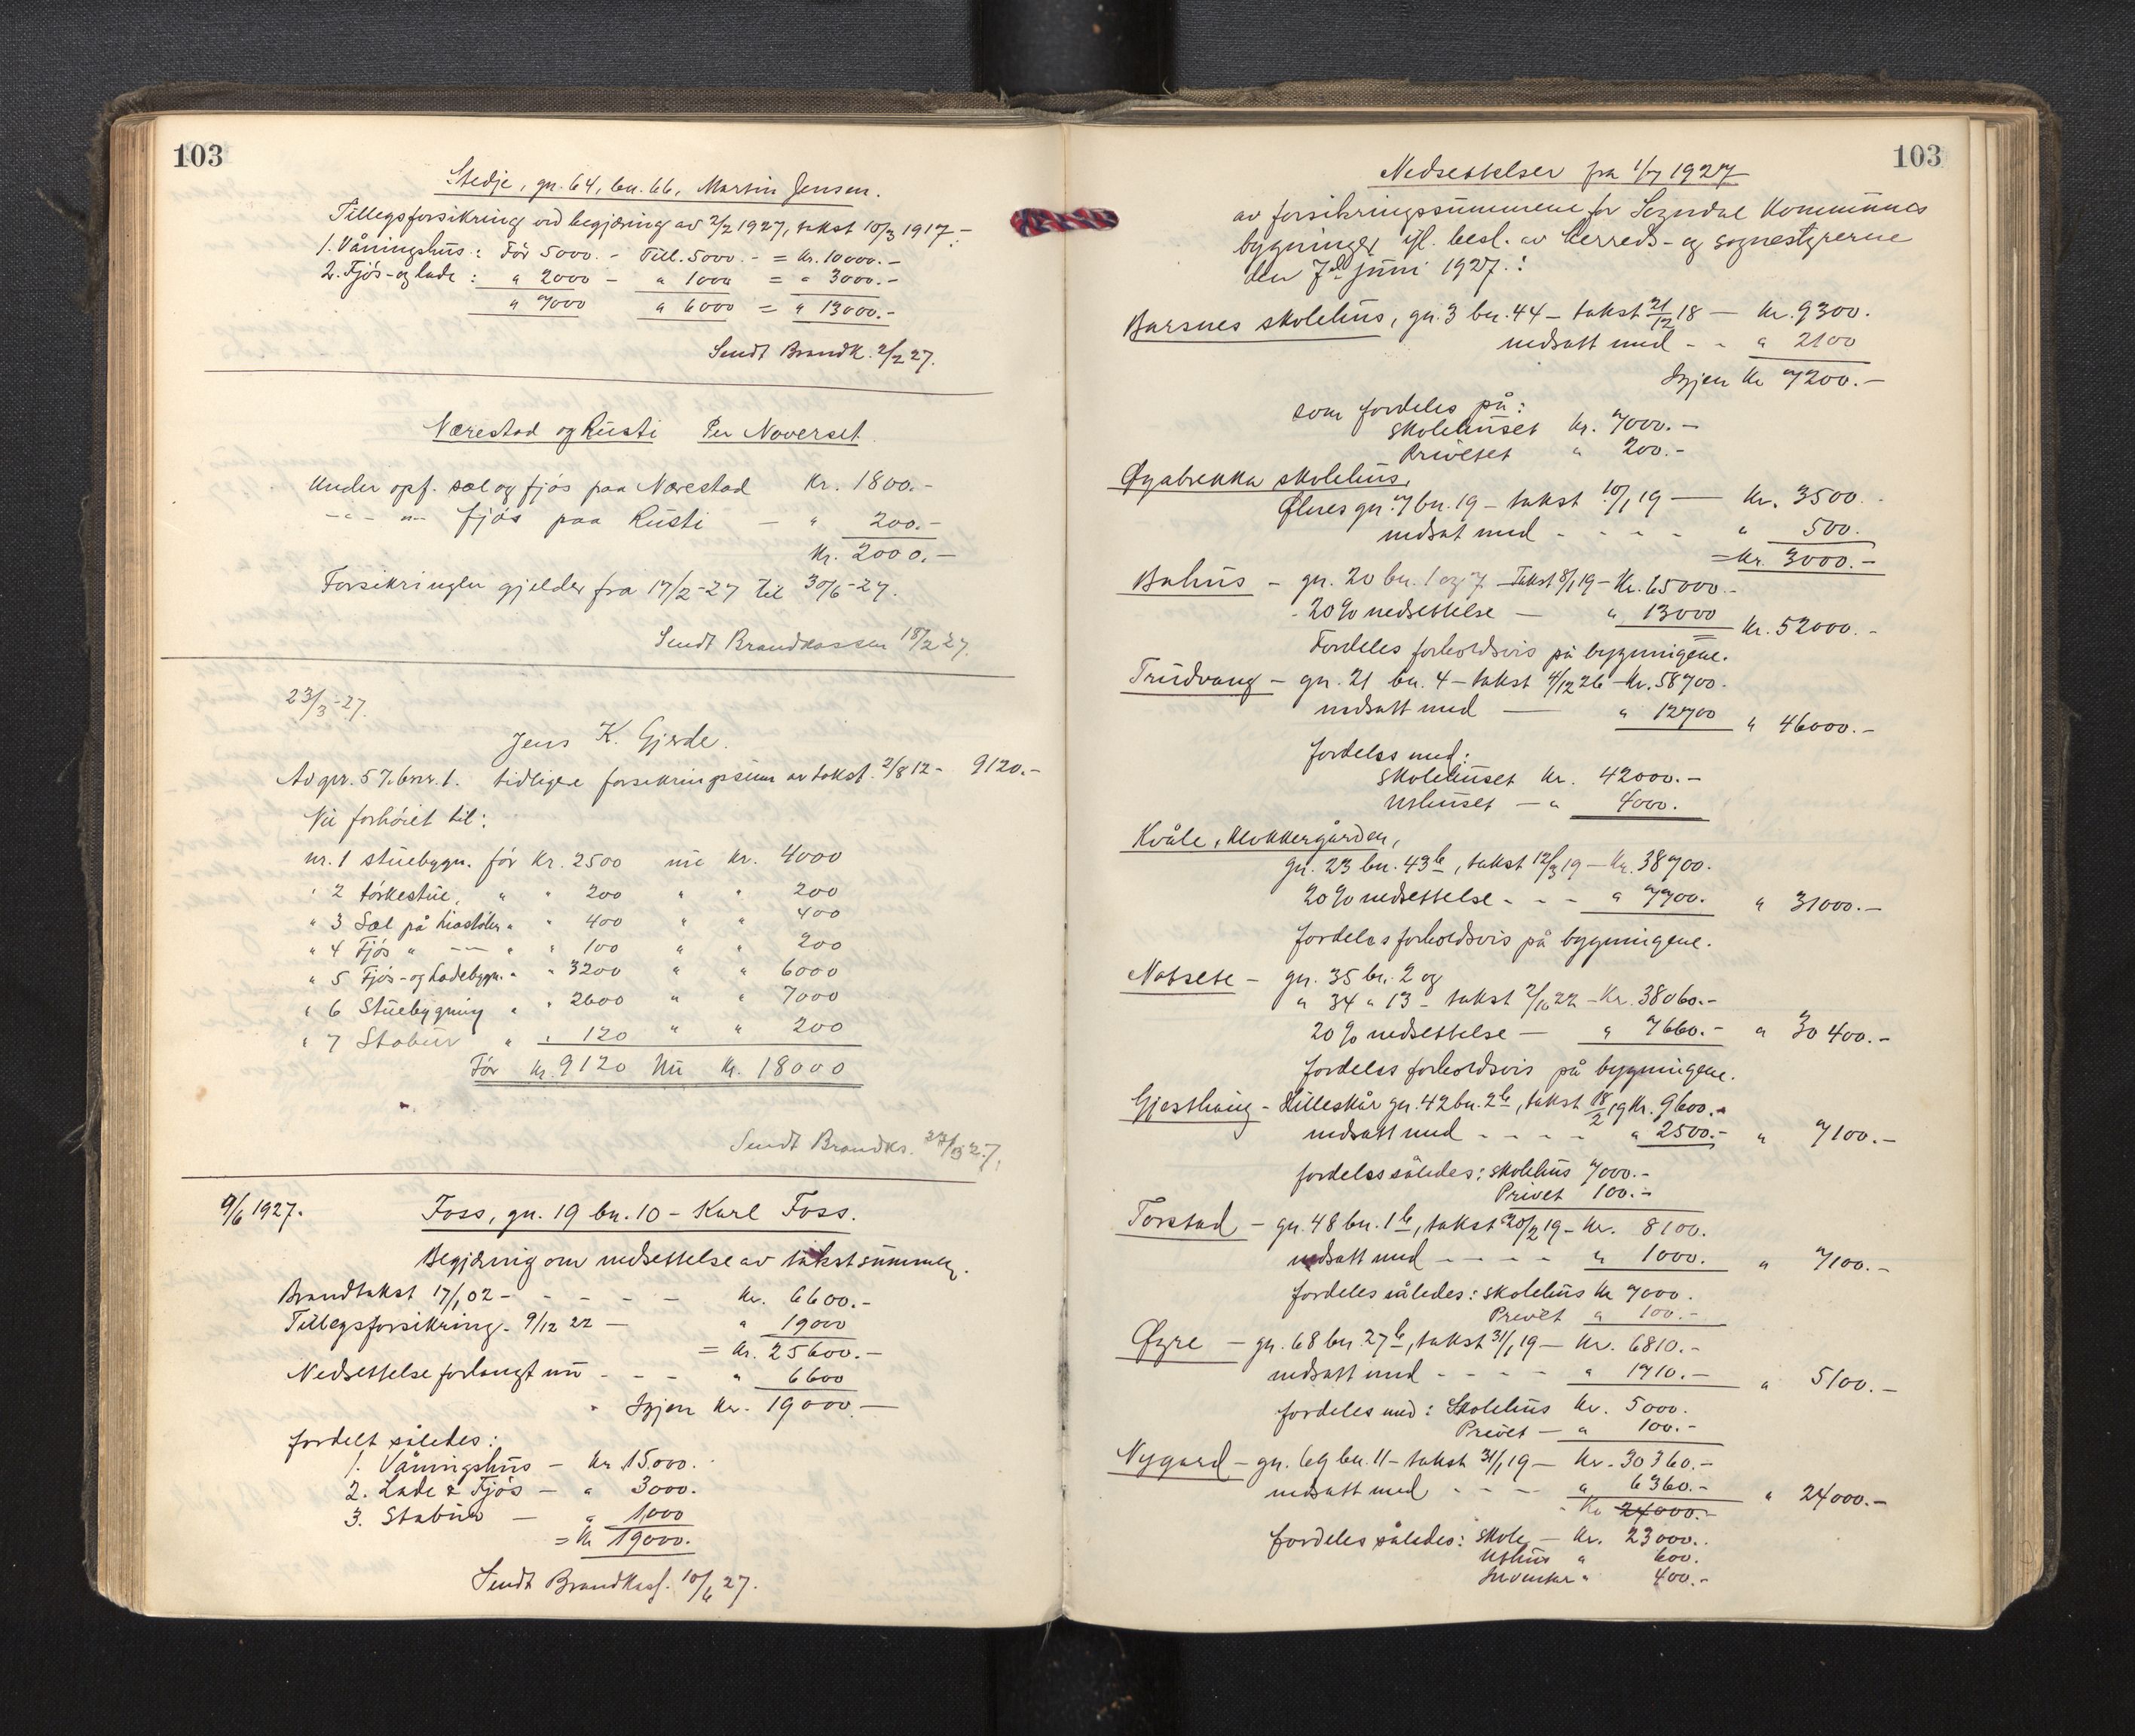 103
Stedje, gn. 64, bn. 66, Martin Jensen.
Tillegsforsikring ved begjæring av 2/2 1927, takst 10/3 1917:-
1. Våningshus: Før 5000.- Till. 5000.- = kr. 10000.-
2. Fjøs- og lade: " 2000 - " 1000 = " 3000.-
" 7000 " 6000 = " 13000.-
Sendt Brandk. 2/2 27.
Nærestad og Rusti Per Noverset.
Under opf. sæl og fjøs paa Nærestad Kr. 1800.-
-"- -"- fjøs paa Rusti - " 200.-
Kr. 2000.-
Forsikringen gjelder fra 17/2-27 til 30/6-27.
Sendt Brandkassen 18/2 27.
23/3-27.
Jens K. Gjerde.
Av gnr. 57. bnr. 1. tidligere forsikringssum av takst 2/8 12- 9120.-
Nu forhøiet til:
nr. 1 stuebygn. før Kr. 2500 nu Kr. 4000
" 2 tørkestue, " " 200 " " 200
" 3 Sæl på hiastølen " " 400 " " 400
" 4 Fjøs " -"- " " 100 " " 200
" 5 Fjøs- og Ladebygn. " " 3200 " " 6000
" 6 Stuebygning " " 2600 " " 7000
" 7 Stabur " " 120 " " 200
Før kr. 9120 Nu Kr. 18000
Sendt Brandks. 27/3 27.
9/6 1927. Foss, gn. 19 bn. 10 - Karl Foss.
Begjæring om nedsettelse av takstsummen.
Brandtakst 17/1 02 - - - - - Kr. 6600.-
Tillegsforsikring - 9/12 22 - " 19000
= kr. 25600.-
Nedsettelse forlangt nu - - - " 6600
Igjen Kr. 19000.-
fordelt således:
1. Våningshus - Kr. 15.000.
2. Lade & Fjøs - " 3000.
3. Stabur - " 1,000
= Kr 19000.
Sendt Brandkas. 10/6 27.
103
Nedsettelser fra 1/7 1927
av forsikringssummene for Sogndal Kommunes
bygninger ifl. besl. av herreds- og sognestyrerne
den 7d juni 1927.:
Barsnes skolehus, gn. 3 bn. 44 - takst 21/12 18 - Kr. 9300.
nedsatt med - - " 2100
Igjen Kr 7200.-
som fordeles på:
Skolehuset Kr. 7000.-
Privetet " 200.-
Øyabrekka skolehus,
Ølnes gn. 7 bn. 19 - takst 10/1 19 - Kr. 3500.
nedsat med - - - - " 500.
= Kr. 3000.-
Buhus - gn. 20 bn. 1 og 7. - Takst 8/1 19 - Kr. 65000.-
- 20% nedsettelse - " 13000 Kr. 52000.-
Fordeles forholdsvis på bygningene.
Trudvang - gn. 21 bn. 4 - takst 4/12 26 - Kr. 58700.
nedsatt med - " 12700 " 46000.-
fordeles med:
Skolehuset Kr. 42000.-
Uthuset - " 4000.
Kvåle, klokkergården,
gn. 23 bn. 43b, takst 12/3 19 - Kr. 38700.
20% nedsettelse - - - " 7700. " 31000.-
fordeles forholdsvis på bygningene.
Notsete - gn. 35 bn. 2 og
" 34 " 13 - takst 2/10 22 - Kr. 38060.-
20% nedsettelse - " 7660.- " 30400.-
fordeles forholdsvis på bygningene.
Gjesthaug - Lilleskår gn. 42 bn. 2b, takst 18/2 19 Kr. 9600.-
nedsatt med - - - - " 2500.- " 7100.-
fordeles således: skolehus 7000.-
Privet 100.-
Torstad - gn. 48 bn. 1b, takst 20/2 19 - Kr. 8100.
nedsatt med - - - - " 1000. " 7100.-
fordeles således: skolehus Kr 7000.
Privet " 100.-
Øyre - gn. 68 bn. 27b, takst 31/1 19 - Kr. 6810.-
nedsatt med - - - - " 1710.- " 5100.-
fordeles med: Skolehus Kr. 5000.
Privet - " 100.-
Nygard - gn. 69 bn. 11 - takst 31/1 19 - Kr. 30360.-
nedsatt med - - - " 6360.- " 24000.-
Kr 24000.-
fordeles således: skole - Kr. 23000.
Uthus " 600.
Inventar " 400.-